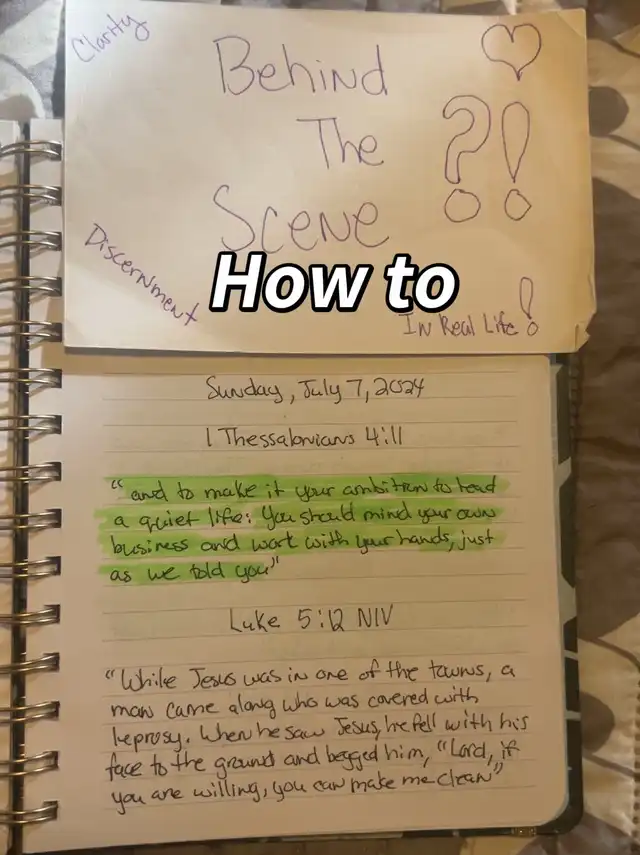 Clarity
Behind
The
Scene
?!
Discernment
How to
In Real Life!
Sunday, July 7, 2024
1 Thessalonians 4:11
"and to make it your ambition to lead
a quiet life: You should mind your own
business and work with your hands, just
as we told you"
Luke 5:12 NIV
"While Jesus was in one of the towns, a
man came along who was covered with
leprosy. When he saw Jesus, he fell with his
face to the ground and begged him, "Lord, if
you are willing, you can make me clean"